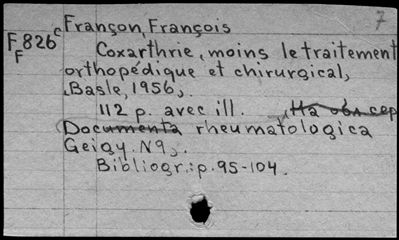 Françon, François
7
F 826 c
F
Coxarthrie, moins le traitement
orthopédique et chirurgical,
Basle, 1956,
112 p. avec ill. На обл. сер
Documenta rheumatologica
Geigy. N9,
Bibliogr.: p. 95-104.